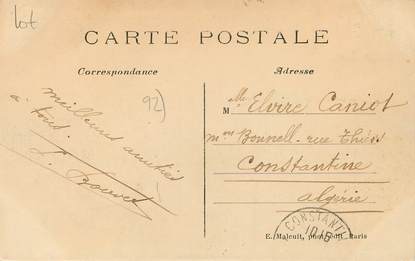 Lot
CARTE POSTALE
Correspondance
Adresse
92)
meilleures amitiés
à tous.
Mlle Elvire Caniot
mme Bonnell - rue Thiers
Constantine
algérie
CONSTANT
E. Malcuit, phot. édit. Paris